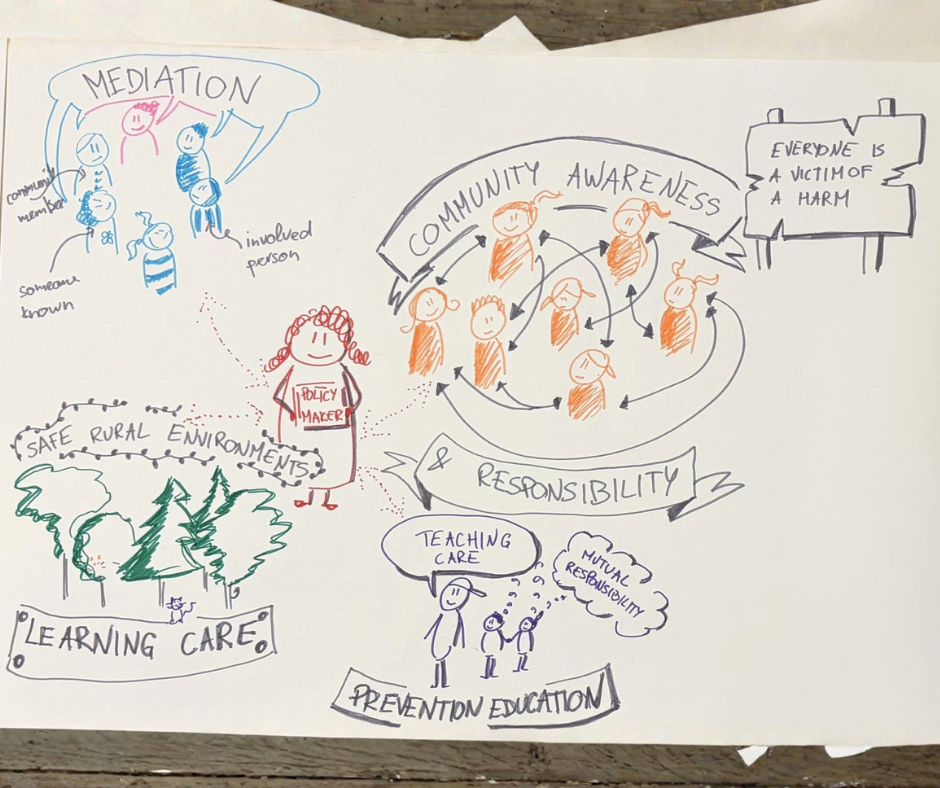 MEDIATION
community
member
someone
known
involved
person
COMMUNITY AWARENESS
EVERYONE IS
A VICTIM OF
A HARM
POLICY
MAKER
SAFE RURAL ENVIRONMENTS
& RESPONSIBILITY
LEARNING CARE
TEACHING
CARE
MUTUAL
RESPONSIBILITY
PREVENTION EDUCATION